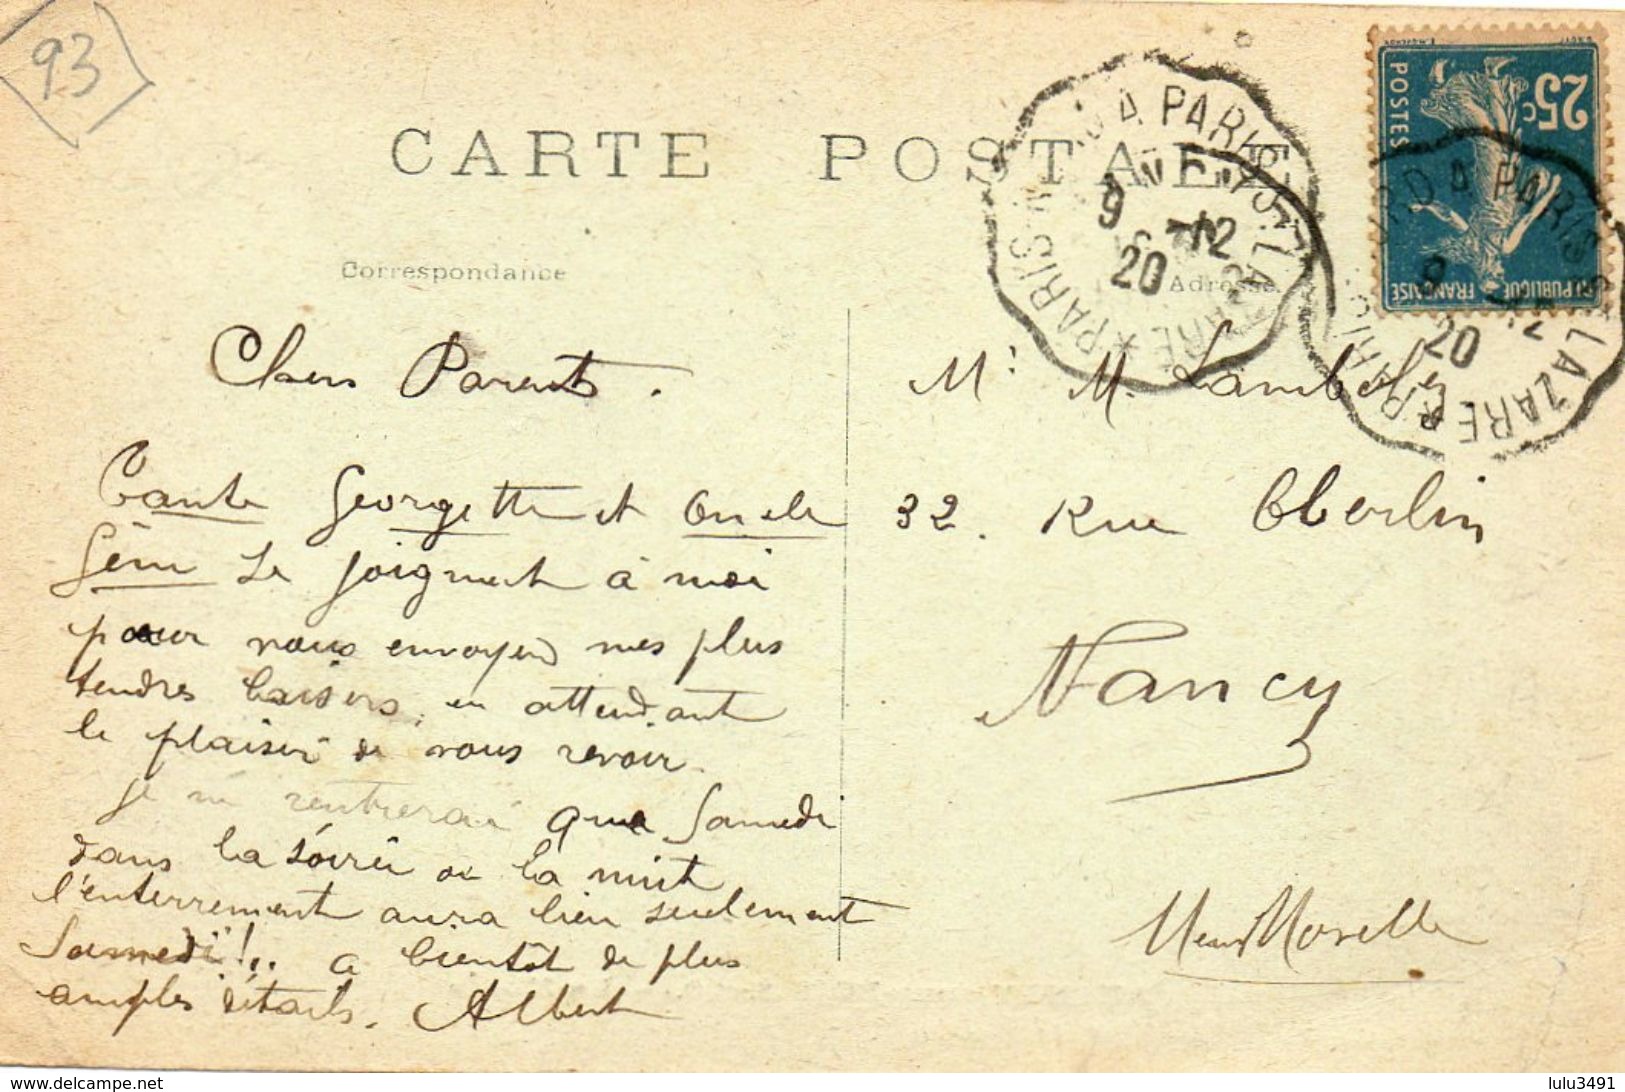 93
CARTE POSTALE
Correspondance
Adresse
25c
POSTES
REPUBLIQUE FRANÇAISE
PARIS NORD A PARIS ST LAZARE
9 -12
20
Chers Parents.
Tante Georgette et Oncle
Gém se joignent à moi
pour vous envoyer mes plus
tendres baisers, en attendant
le plaisir de vous revoir.
je ne rentrerai que Samedi
dans la soirée ou la nuit
l'enterrement aura lieu seulement
Samedi!.. a bientôt de plus
amples détails. Albert
Mr M. Lambolez
32. Rue Oberlin
Nancy
Meur Moselle
delcampe.net
lulu3491